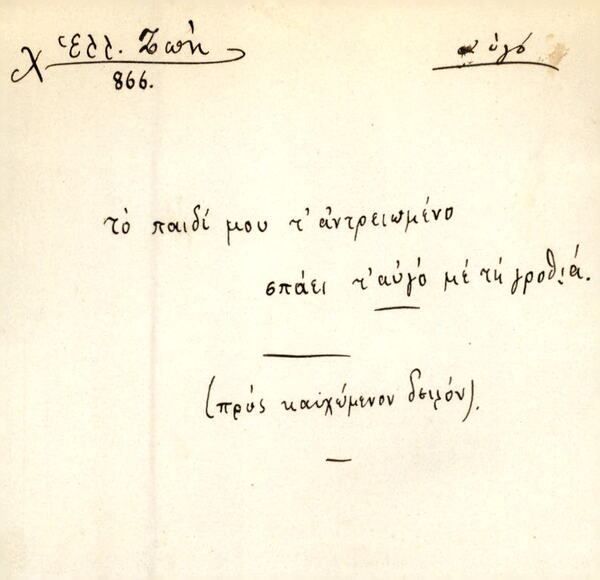 Ἑλλ. Ζωή
866.
αὐγό
τὸ παιδί μου τ' ἀντρειωμένο
σπάει τ' αὐγὸ μὲ τὴ γροθιά.
(πρὸς καυχώμενον δειλόν).